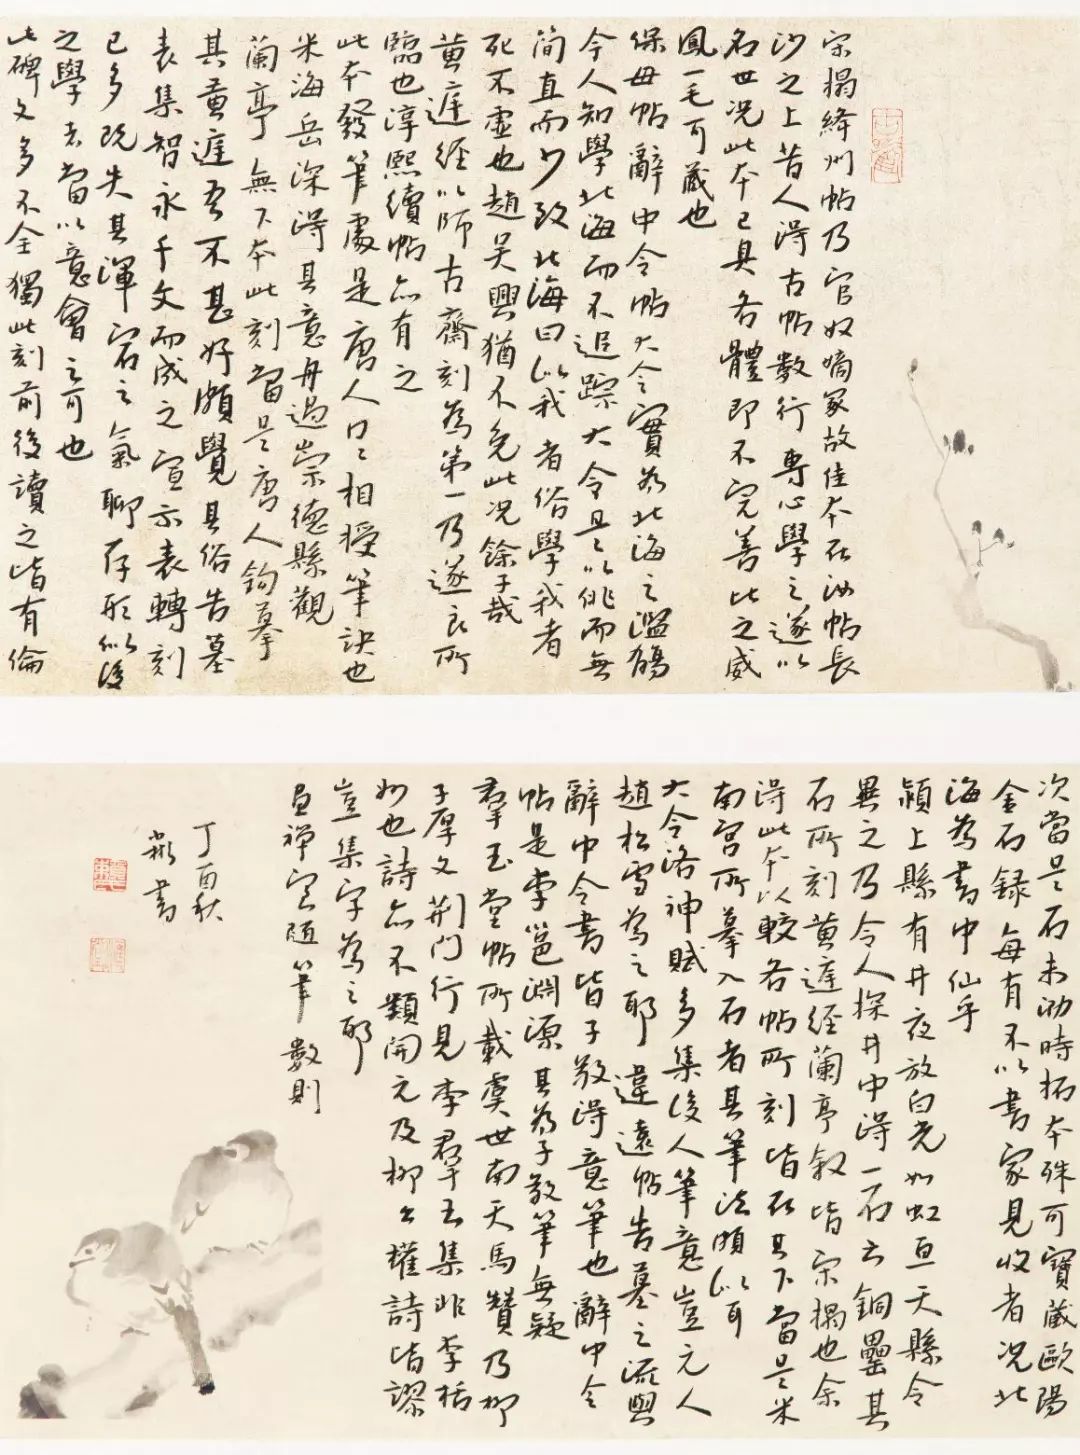 宋搨绛州帖乃官奴嫡冢故佳本在汝帖長
沙之上昔人得古帖數行專心學之遂以
名世况此本已具各體即不完善比之威
鳳一毛可藏也
保母帖辭中令帖大令實為北海之濫觴
今人知學北海而不追踪大令是以佻而無
簡直而少致北海曰似我者俗學我者
死不虛也趙吴興猶不免此况餘子哉
黄庭經以師古齋刻為第一乃遂良所
臨也淳熙續帖亦有之
此本發筆處是唐人口口相授筆訣也
米海岳深得其意舟過崇德縣觀
蘭亭無下本此刻當是唐人鈎摹
其黄庭吾不甚好頗覺其俗告墓
表集智永千文而成之宣示表轉刻
已多既失其渾宕之氣聊存形似後
之學者當以意會之可也
此碑文多不全獨此刻前後讀之皆有倫
次當是石未泐時拓本殊可寶藏歐陽
金石錄每有不以書家見收者况北
海為書中仙乎
潁上縣有井夜放白光如虹亘天縣令
異之乃令人探井中得一石六銅罍其
石所刻黄庭經蘭亭叙皆宋搨也余
得此本以較各帖所刻皆在其下當是米
南宫所摹入石者其筆法頗似耳
大令洛神賦多集後人筆意豈元人
趙松雪為之耶 違遠帖告墓之流與
辭中令書皆子敬得意筆也辭中令
帖是李邕淵源其為子敬筆無疑
羣玉堂帖所載虞世南天馬贊乃柳
子厚文荆門行見李羣玉集非李括
州也詩亦不類開元及柳公權詩皆謬
豈集字為之耶
畫禪室隨筆 數則
丁酉秋
書